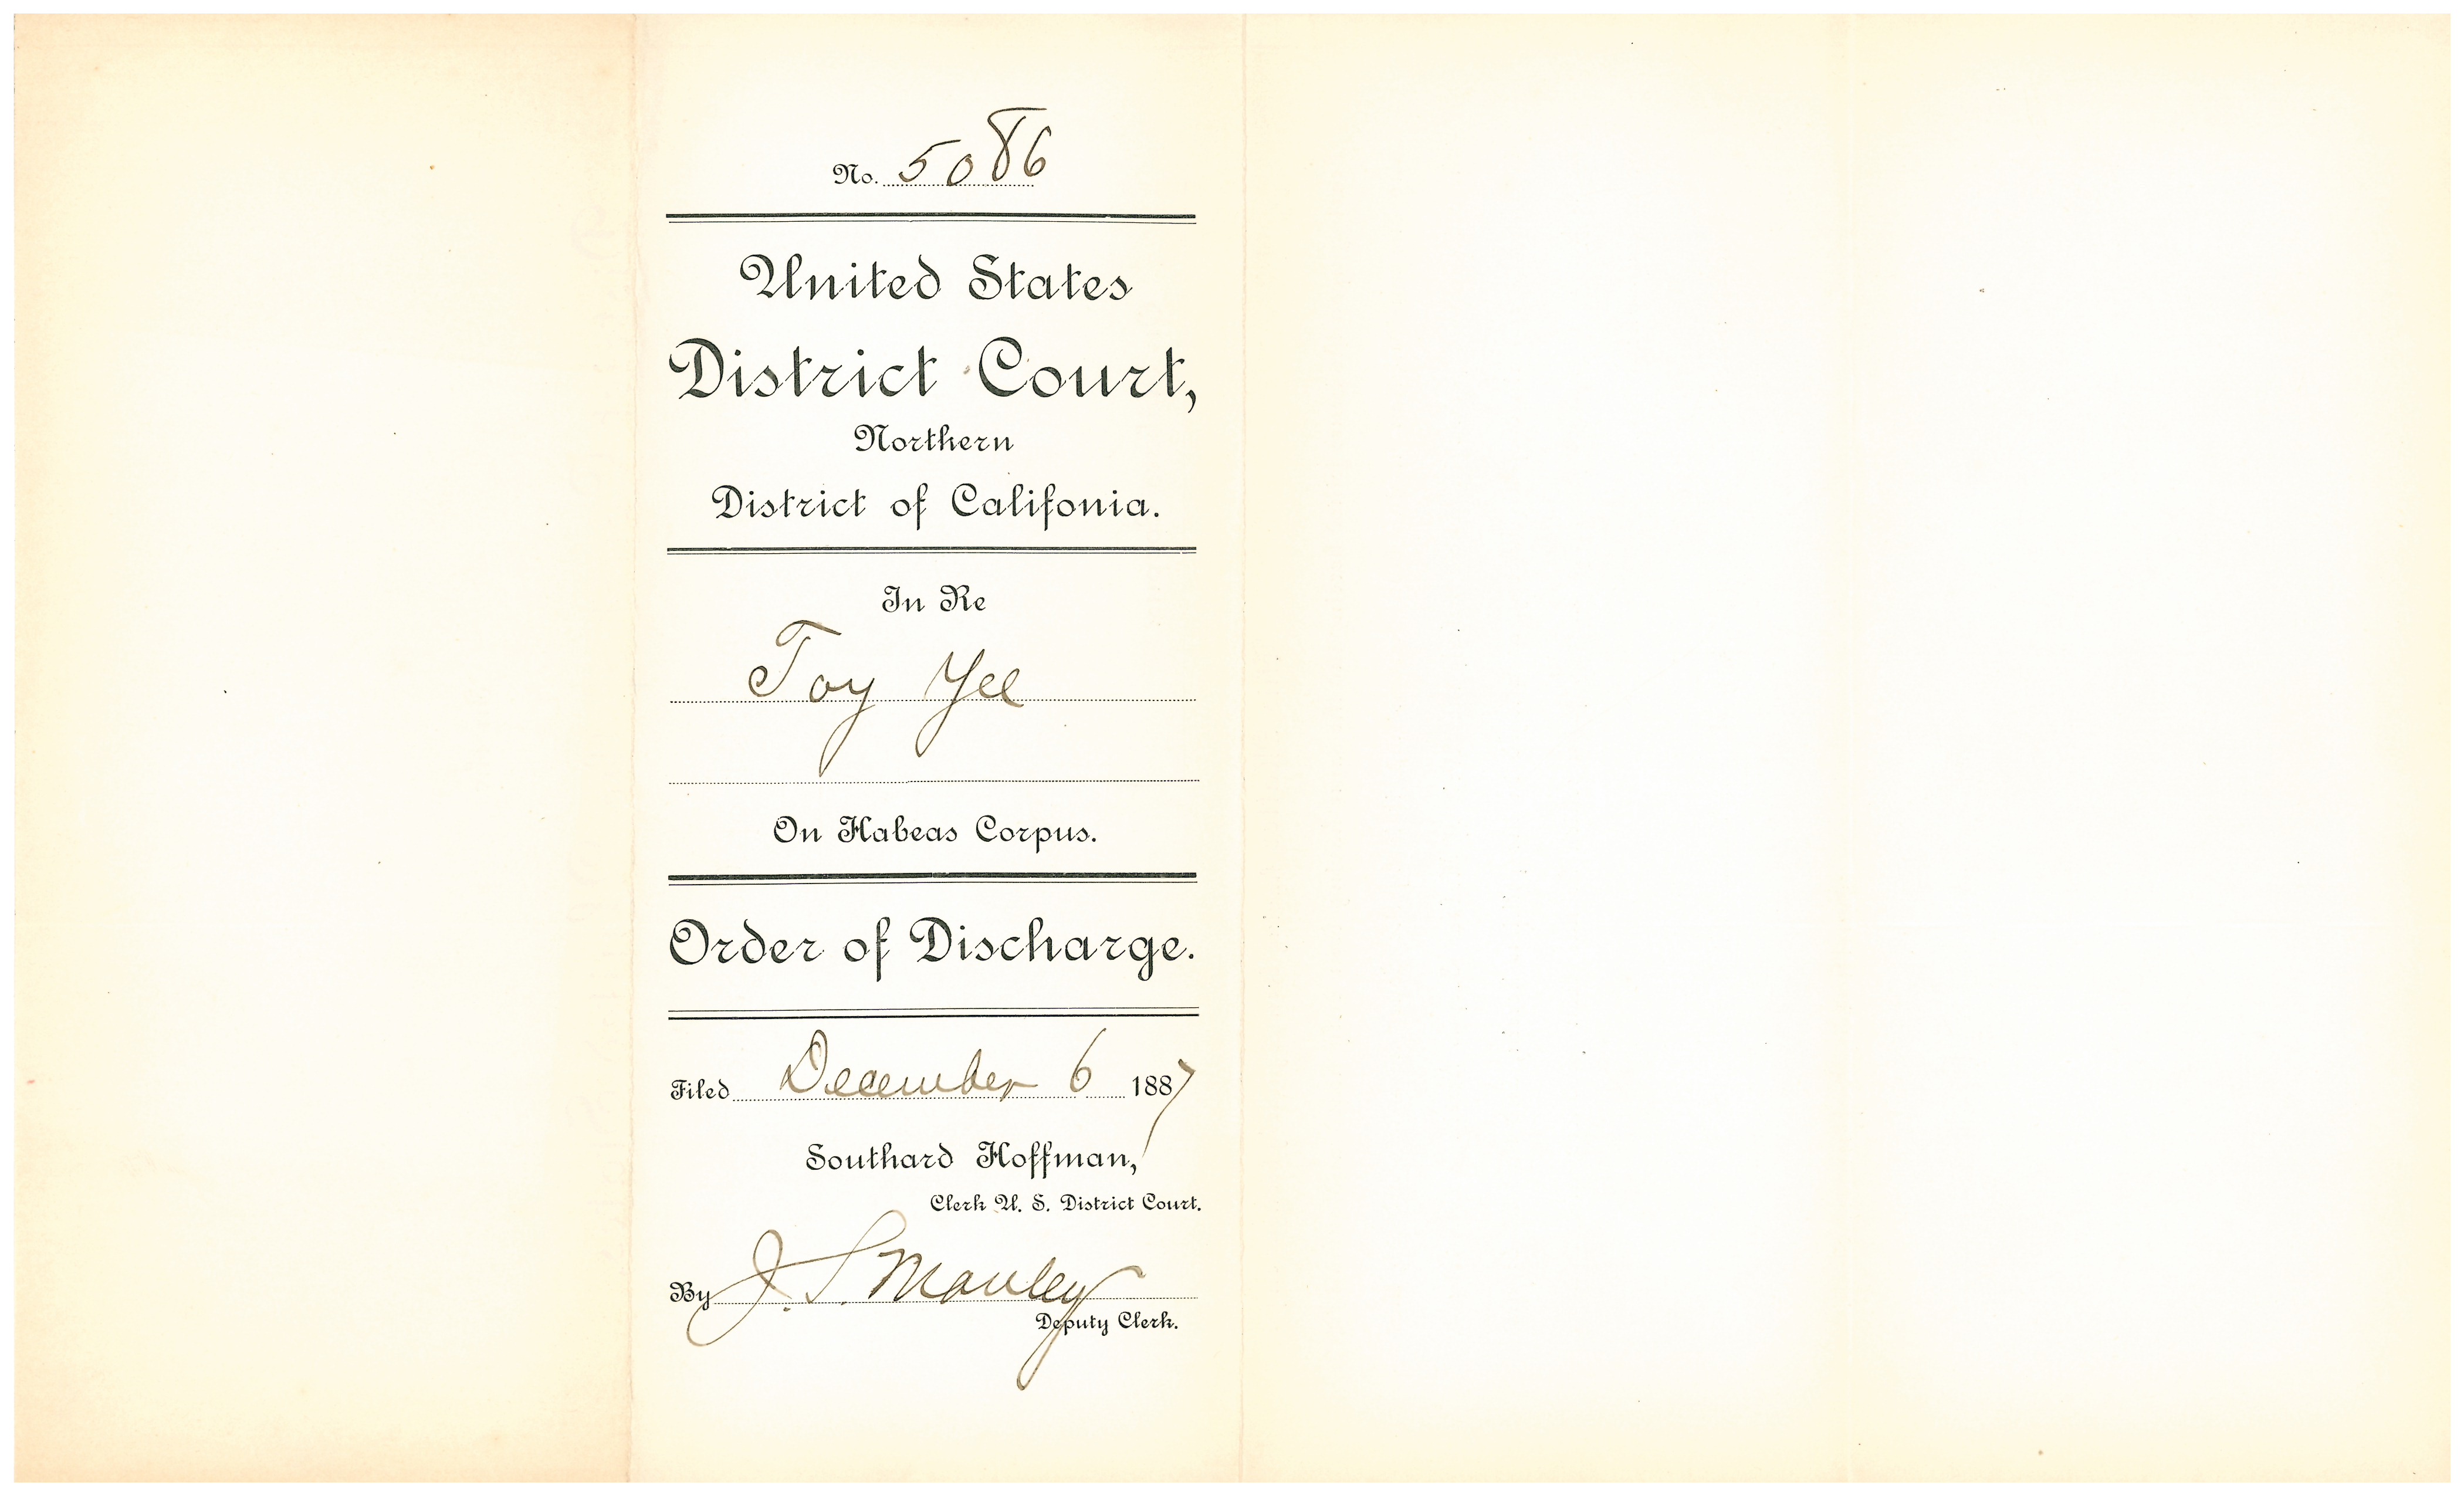 No. 5086
United States
District Court,
Northern
District of Califonia.
In Re
Toy Yee
On Habeas Corpus.
Order of Discharge.
Filed December 6 1887
Southard Hoffman,
Clerk U. S. District Court.
By J. S. Manley
Deputy Clerk.